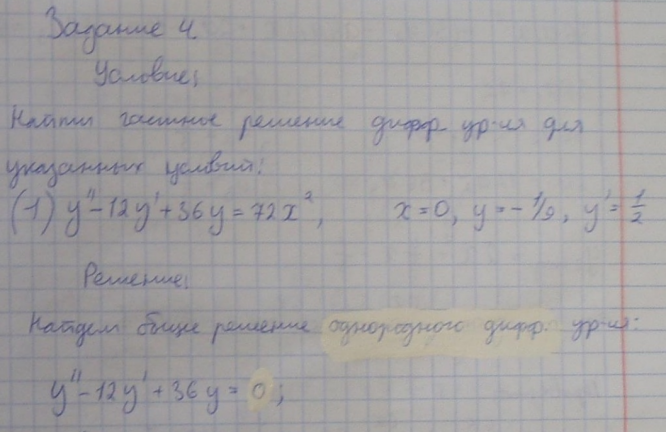 Задание 4
Условие:
Найти частное решение дифф. ур-ия для
указанных условий:
(1) y'' - 12y' + 36y = 72x³, x=0, y=-1/9, y'=1/2
Решение:
Найдем общее решение однородного дифф. ур-ия:
y'' - 12y' + 36y = 0;